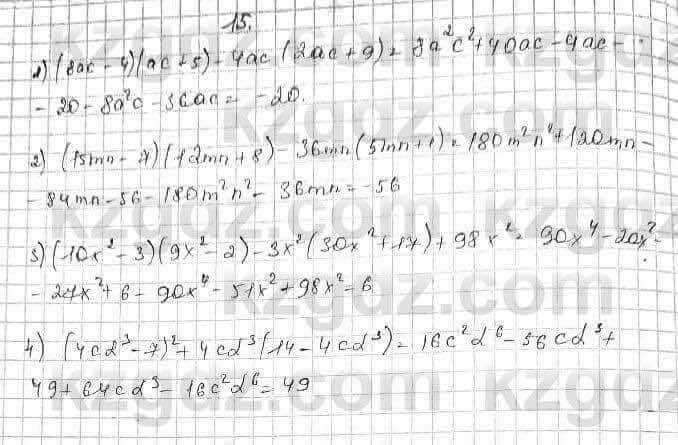 15.
1) (8ac - 4)(ac + 5) - 4ac (2ac + 9) = 8a²c² + 40ac - 4ac -
- 20 - 8a²c - 36ac = -20.
2) (15mn - 7)(12mn + 8) - 36mn (5mn + 1) = 180m²n² + 120mn -
- 84mn - 56 - 180m²n² - 36mn = -56
3) (10x² - 3)(9x² - 2) - 3x² (30x² + 17) + 98x² = 90x⁴ - 20x² -
- 27x² + 6 - 90x⁴ - 51x² + 98x² = 6
4) (4cd³ - 7)² + 4cd³ (14 - 4cd³) = 16c²d⁶ - 56cd³ +
49 + 64cd³ - 16c²d⁶ = 49
kzgdz.com